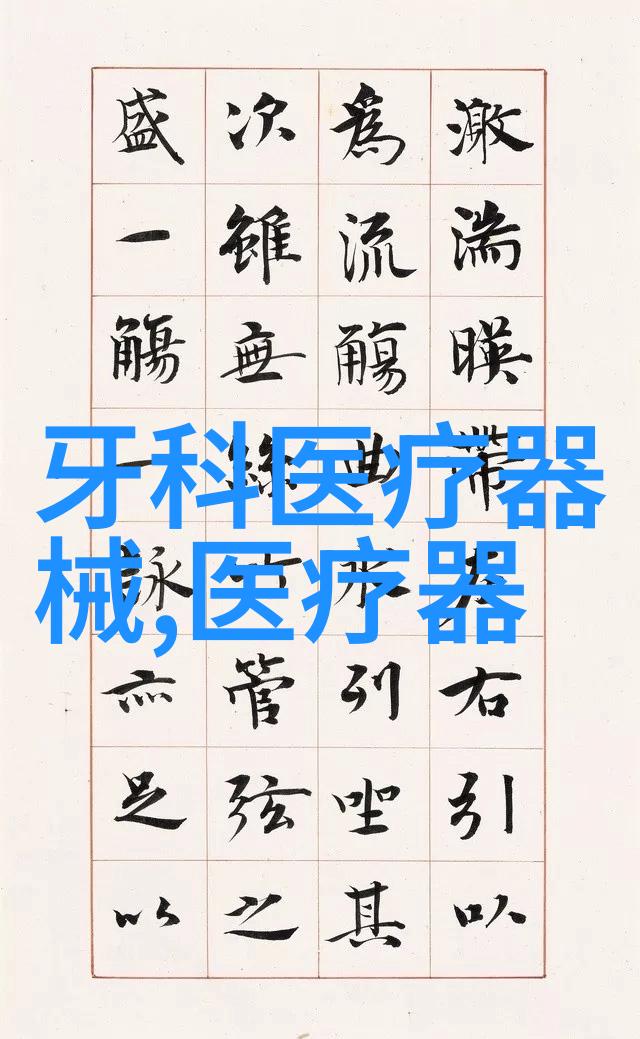 激湍暎帶左右引以
為流觴曲水列坐其
次雖無絲竹管弦之
盛一觴一詠亦足以
牙科医疗器
械,医疗器